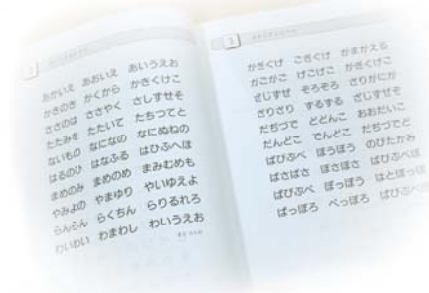 あかいえ あおいえ あいうえお
かきのき かくから かきくけこ
ささのは ささやく さしすせそ
たたみを たたいて たちつてと
ないもの なになの なにぬねの
はるのひ はなふる はひふへほ
まめのみ まめのめ まみむめも
やみよの やまゆり やいゆえよ
らんらん らくちん らりるれろ
わいわい わまわし わいうえお
がぎぐげ ごぎぐげ がまがえる
がごがご げごげご がぎぐげご
ざじずぜ ぞろぞろ ざりがにが
ざりざり ずるずる ざじずぜぞ
だぢづで どどんこ おおだいこ
だんどこ でんどこ だぢづでど
ばびぶべ ぼうぼう のびたかみ
ばさばさ ぼさぼさ ばびぶべぼ
ぱぴぷぺ ぽっぽう はとぽっぽ
ぱっぽろ ぺっぽろ ぱぴぷぺぽ